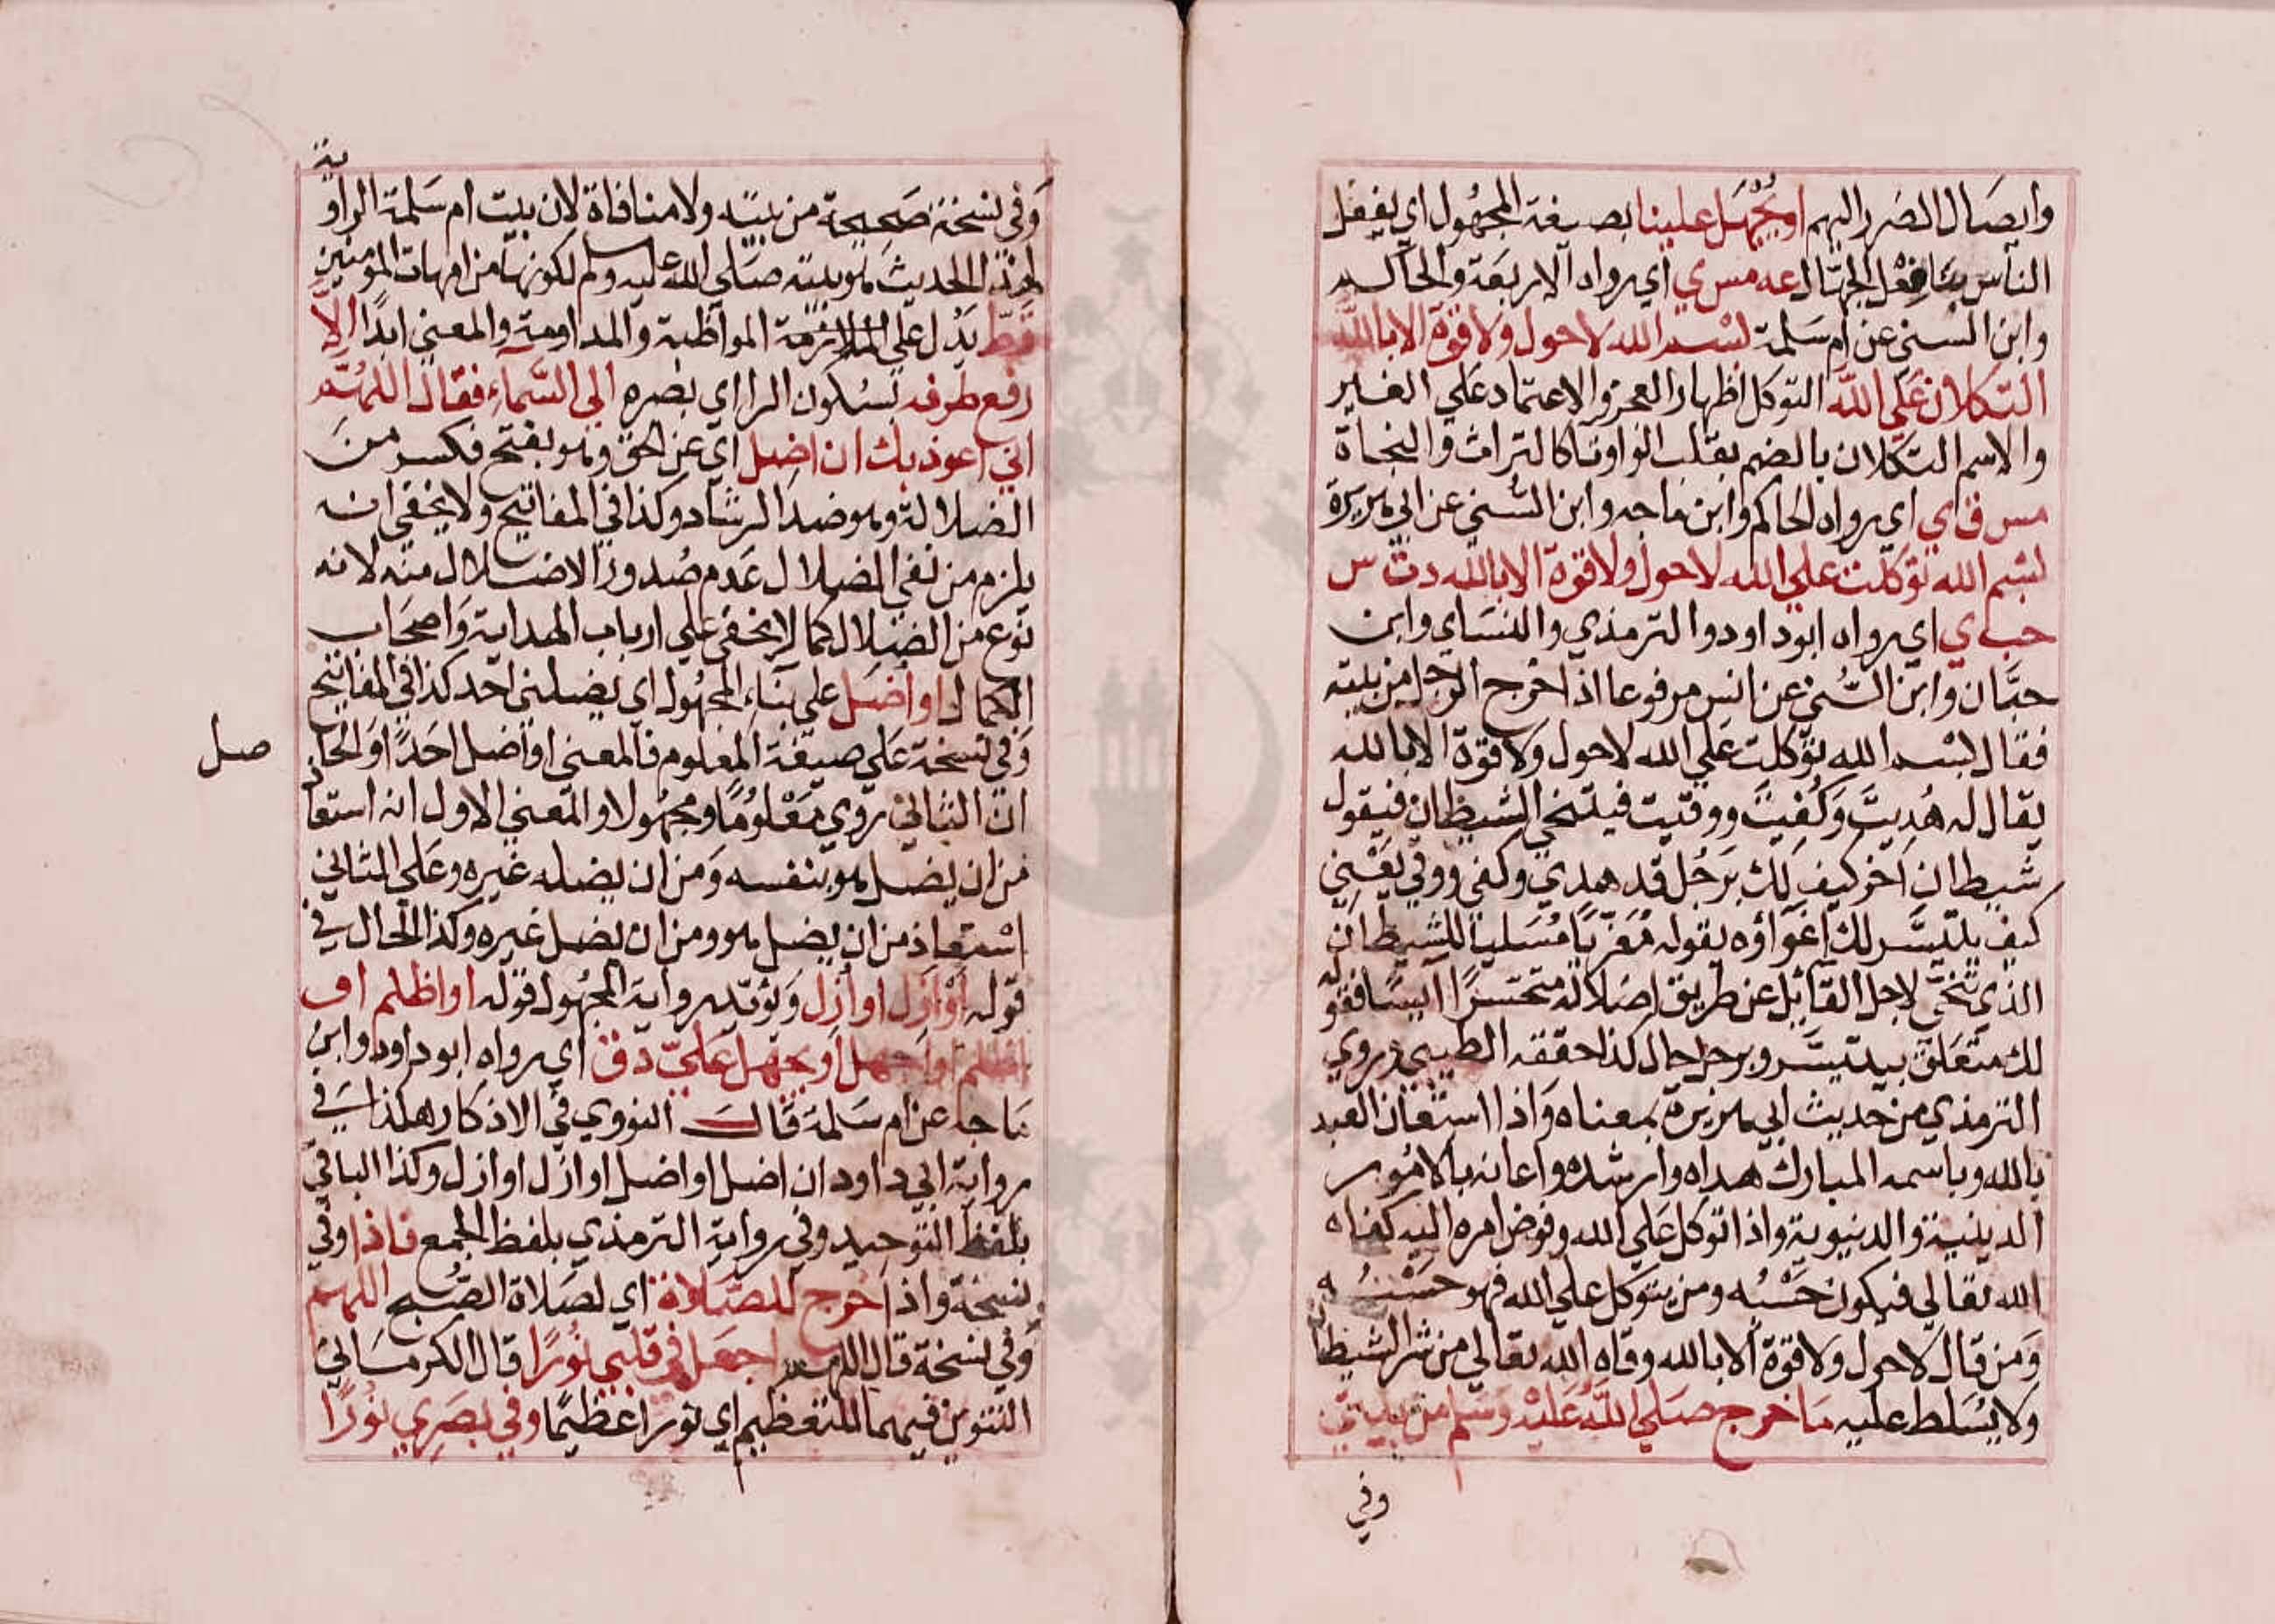 وايصال الضرر اليهم او يجهل علينا بصيغة المجهول اي يفعل
الناس بنا فعل الجهال عه مس ي اي رواه الاربعة والحاكم
وابن السني عن ام سلمة بسم الله لا حول ولا قوة الا بالله
التكلان على الله التوكل اظهار العجز والاعتماد على الغير
والاسم التكلان بالضم بقلب الواو تا كالتراث والنجاة
مس ق ي اي رواه الحاكم وابن ماجه وابن السني عن ابي هريرة
بسم الله توكلت على الله لا حول ولا قوة الا بالله د ت س
حب ي اي رواه ابو داود والترمذي والنسائي وابن
حبان وابن السني عن انس مرفوعا اذا خرج الرجل من بيته
فقال بسم الله توكلت على الله لا حول ولا قوة الا بالله
يقال له هُديت وكُفيت ووقيت فيتنحى الشيطان فيقول
شيطان اخر كيف لك برجل قد هدي وكفي ووقي يعني
كيف يتيسر لك اغواؤه يقوله معزيا مسليا للشيطان
الذي تنحى لاجل القائل عن طريق اضلاله متحسرا آيسا فقوله
لك متعلق بيتيسر وبرجل حال كذا حققه الطيبي وروي
الترمذي من حديث ابي هريرة بمعناه واذا استعان العبد
بالله وباسمه المبارك هداه وارشده واعانه بالامور
الدينية والدنيوية واذا توكل على الله وفوض امره اليه كفاه
الله تعالى فيكون حسبه ومن يتوكل على الله فهو حسبه
ومن قال لا حول ولا قوة الا بالله وقاه الله تعالى من شر الشيطان
ولا يسلط عليه ما خرج صلى الله عليه وسلم من بيتي
وفي
وفي نسخة صحيحة من بيته ولا منافاة لان بيت ام سلمة الراوية
لهذا الحديث هو بيته صلى الله عليه وسلم لكونها من امهات المومنين
قط يدل على الملازمة المواظبة والمداومة والمعنى ابدا الا
رفع طرفه بسكون الرا اي بصره الى السماء فقال اللهم
اني اعوذ بك ان اضل اي عن الحق وهو بفتح فكسر من
الضلالة وهو ضد الرشاد وكذا في المفاتيح ولا يخفى انه
يلزم من نفي الضلال عدم صدور الاضلال منه لانه
نوع من الضلال كما لا يخفى على ارباب الهداية واصحاب
الكمال او اضل على بناء المجهول اي يضلني احد كذا في المفاتيح
وفي نسخة على صيغة المعلوم فالمعنى او اضل احدا او الحا
صل
ان الثاني روي معلوما ومجهولا والمعنى الاول انه استعاذ
من ان يضل هو بنفسه ومن ان يضله غيره وعلى الثاني
استعاذ من ان يضل هو ومن ان يضل غيره وكذا الحال في
قوله او ازل او ازل ويؤيد رواية المجهول قوله او اظلم او
اظلم او اجهل او يجهل علي د ق اي رواه ابو داود وابن
ماجه عن ام سلمة قال النووي في الاذكار هكذا في
رواية ابي داود ان اضل او اضل او ازل او ازل وكذا الباقي
بلفظ التوحيد وفي رواية الترمذي بلفظ الجمع فاذا وفي
نسخة واذا خرج للصلاة اي لصلاة الصبح اللهم
وفي نسخة قال اللهم اجعل في قلبي نورا قال الكرماني
التنوين فيهما للتعظيم اي نورا عظيما وفي بصري نورا